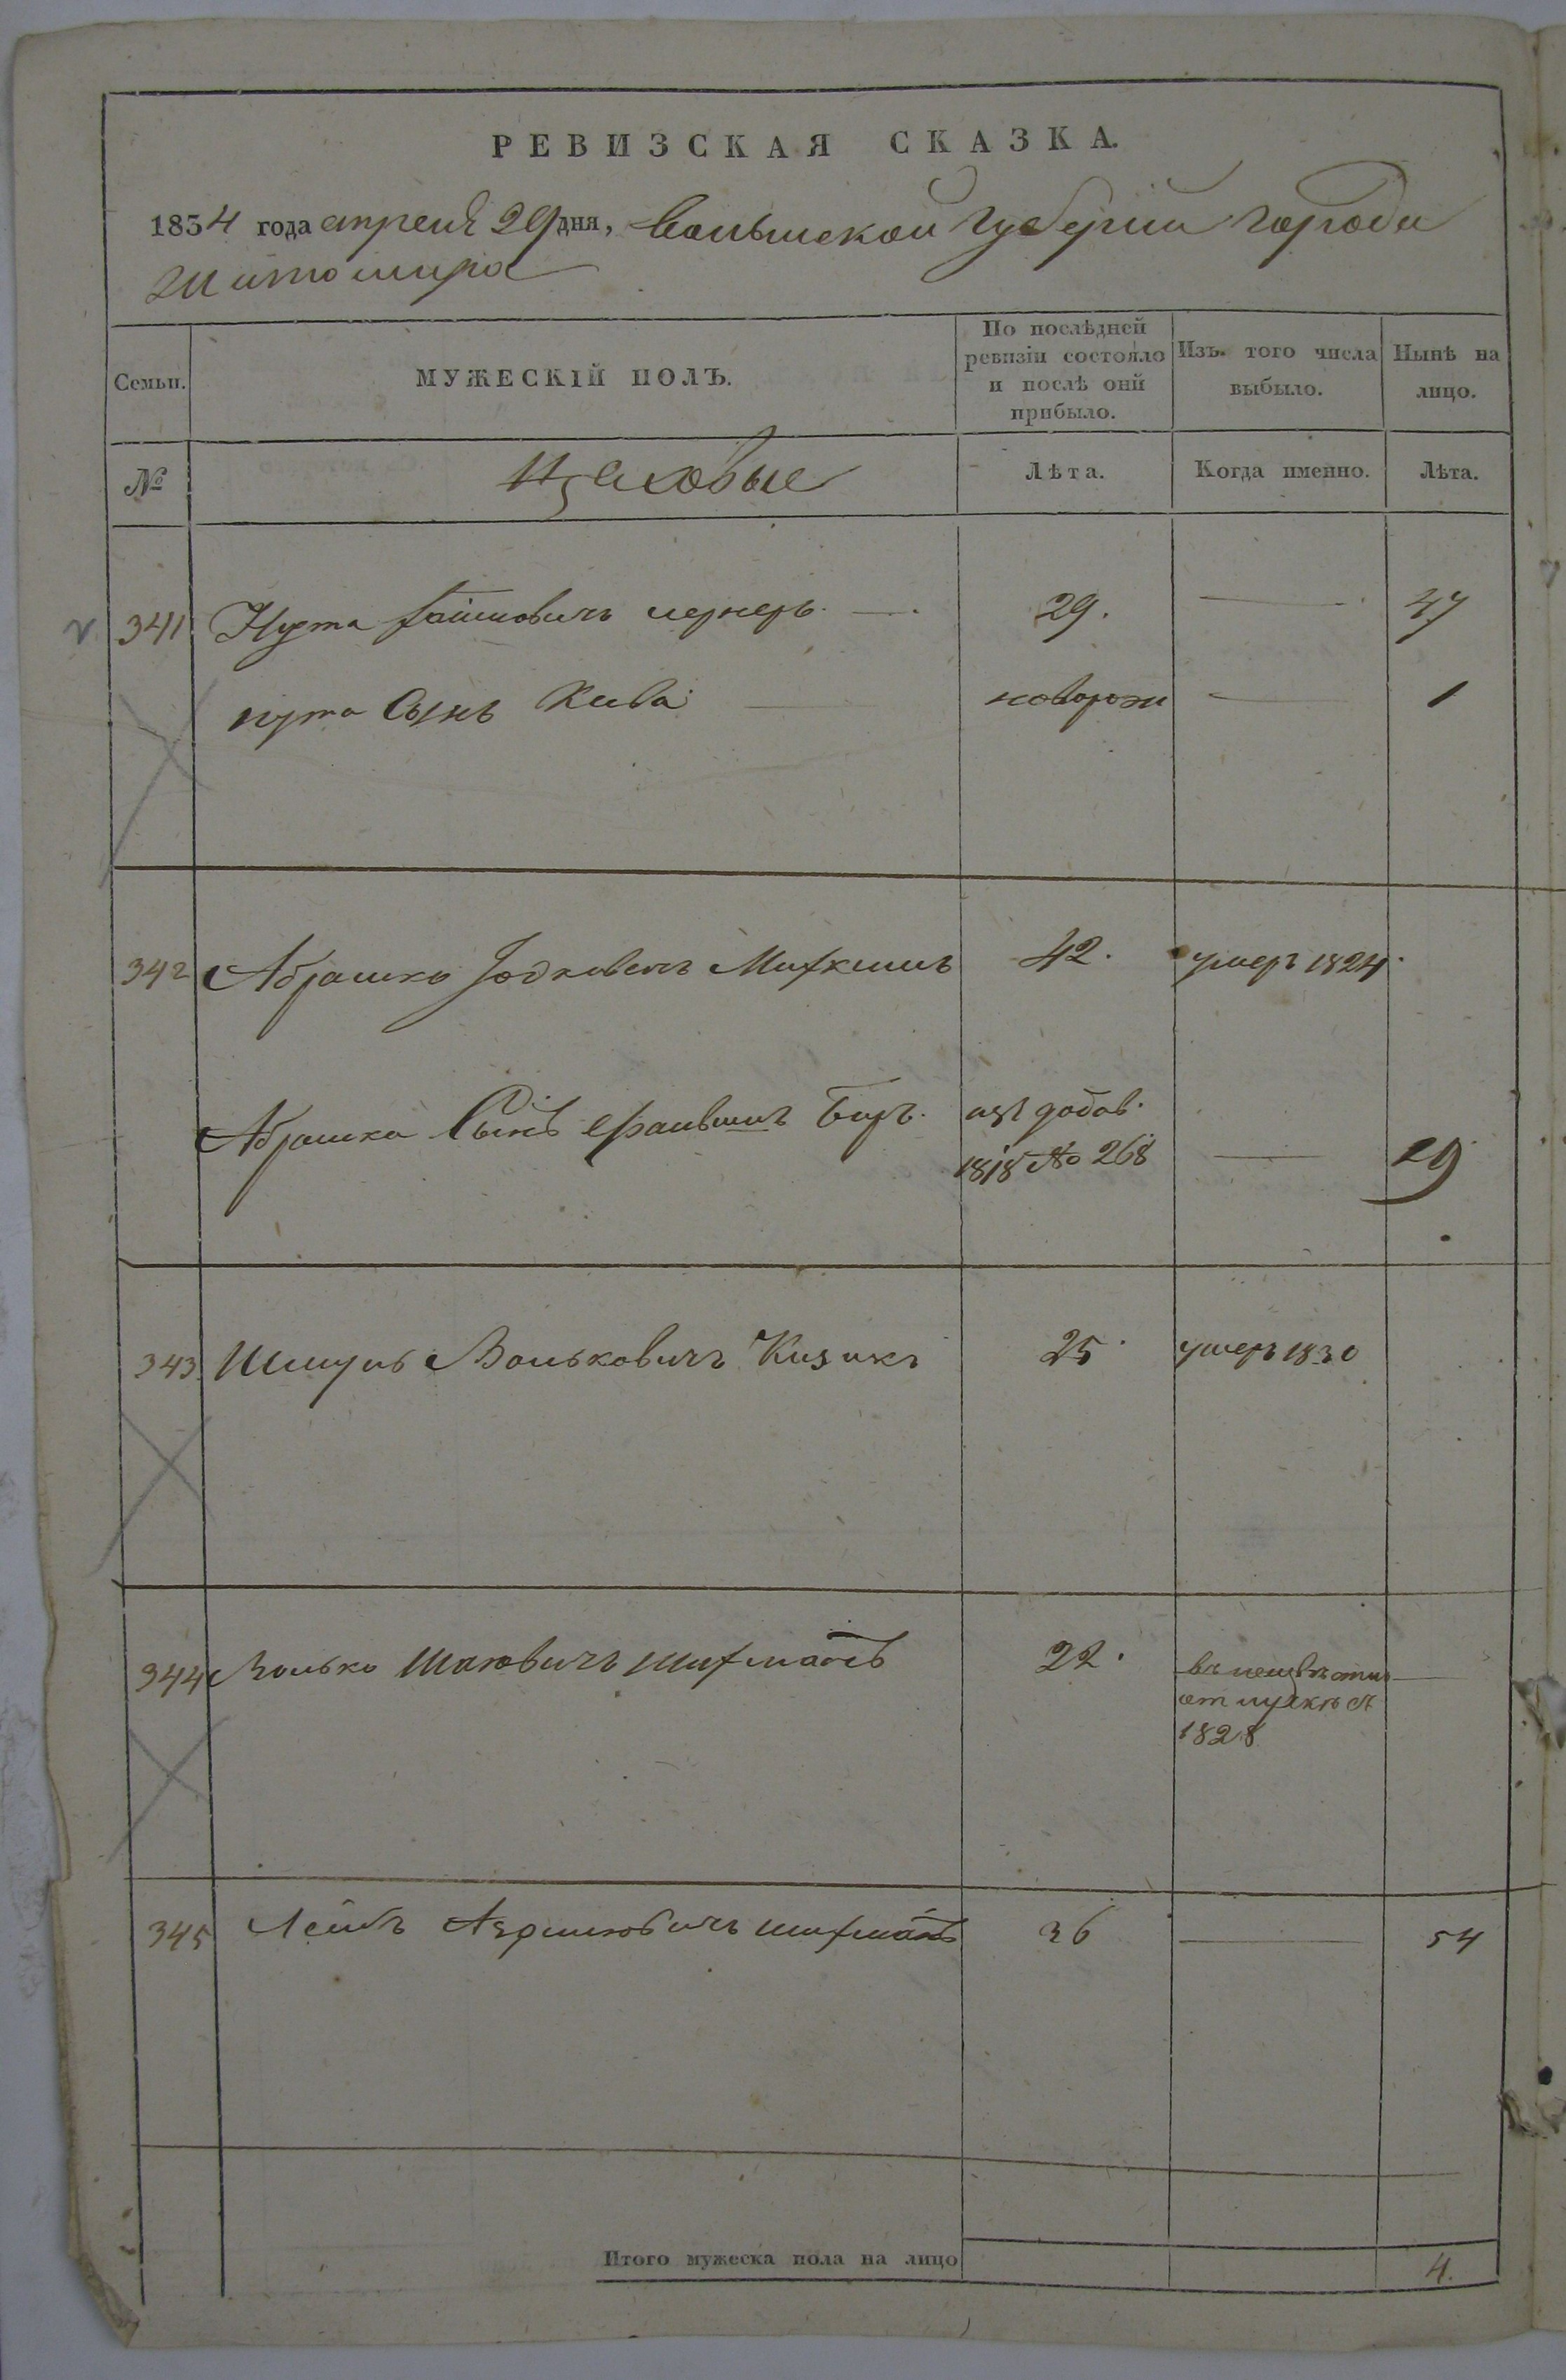 РЕВИЗСКАЯ СКАЗКА.
1834 года апреля 29 дня, Волынской Губернии города
Житомира
Семьи.
МУЖЕСКІЙ ПОЛЪ.
По послѣдней
ревизіи состояло
и послѣ онй
прибыло.
Изъ того числа
выбыло.
Нынѣ на
лицо.
№
Цеховые
Лѣта.
Когда именно.
Лѣта.
341 Нута лернеръ 29. 47
нута Сынъ Кива новорож 1
342 Абрашко Іодковичъ 42. умеръ 1824
Абрашка Сынъ Беръ. добав.
1818 № 268 29
343 Шмуль Вольковичъ Кизикъ 25 умеръ 1830
344 Волько шихманъ 22. въ неизвѣстн
отлучкѣ съ
1828
345 Лейбъ шихманъ 36 54
Итого мужеска пола на лицо 4.